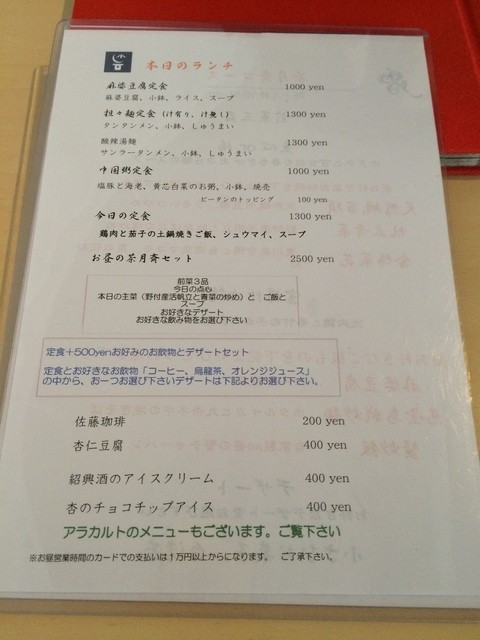 本日のランチ
麻婆豆腐定食 1000 yen
麻婆豆腐、小鉢、ライス、スープ
担々麺定食（汁有り、汁無し） 1300 yen
タンタンメン、小鉢、しゅうまい
酸辣湯麺 1300 yen
サンラータンメン、小鉢、しゅうまい
中国粥定食 1000 yen
塩豚と海老、黄芯白菜のお粥、小鉢、焼売
ピータンのトッピング 100 yen
今日の定食 1300 yen
鶏肉と茄子の土鍋焼きご飯、シュウマイ、スープ
お昼の茶月斎セット 2500 yen
前菜３品
今日の点心
本日の主菜（野付産活帆立と青菜の炒め）と ご飯と
スープ
お好きなデザート
お好きな飲み物をお選び下さい
定食＋500yenお好みのお飲物とデザートセット
定食とお好きなお飲物「コーヒー、烏龍茶、オレンジジュース」
の中から、お一つお選び下さいデザートは下記よりお選び下さい。
佐藤珈琲 200 yen
杏仁豆腐 400 yen
紹興酒のアイスクリーム 400 yen
杏のチョコチップアイス 400 yen
アラカルトのメニューもございます。ご覧下さい
※お昼営業時間のカードでの支払いは１万円以上からになります。 ご了承下さい。